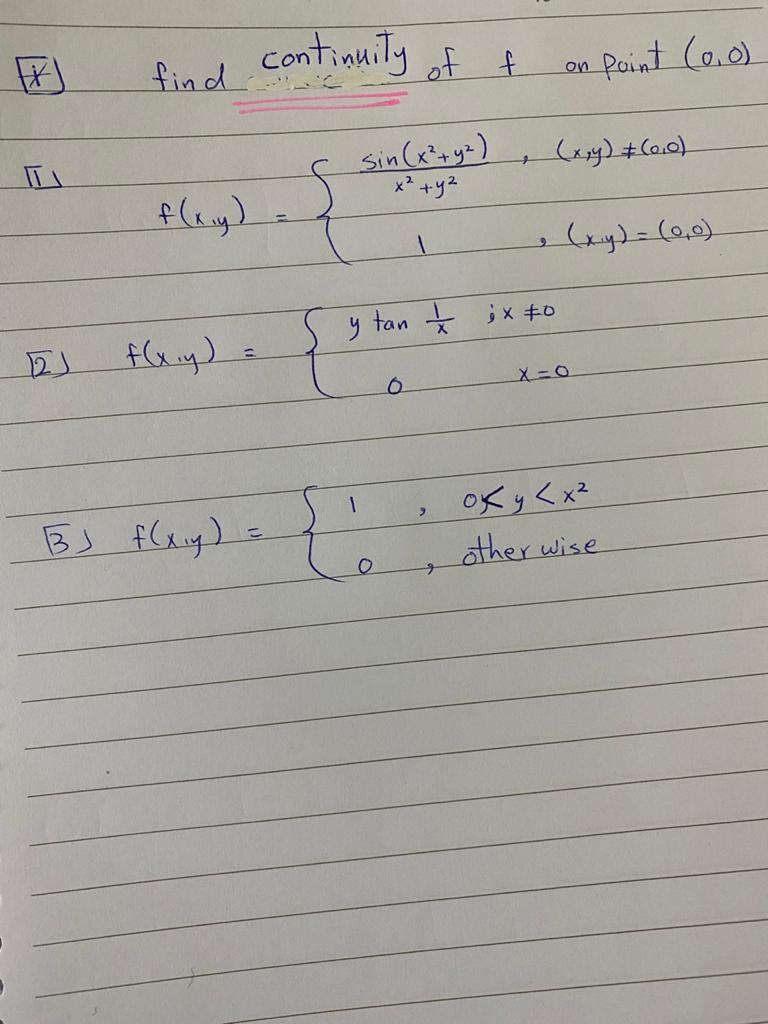 [*] find continuity of f on point (0,0)
[1] f(x,y) = { sin(x²+y²) / x²+y² , (x,y) ≠ (0,0)
1 , (x,y) = (0,0)
[2] f(x,y) = { y tan 1/x ; x ≠ 0
0 x = 0
[3] f(x,y) = { 1 , 0 < y < x²
0 , other wise